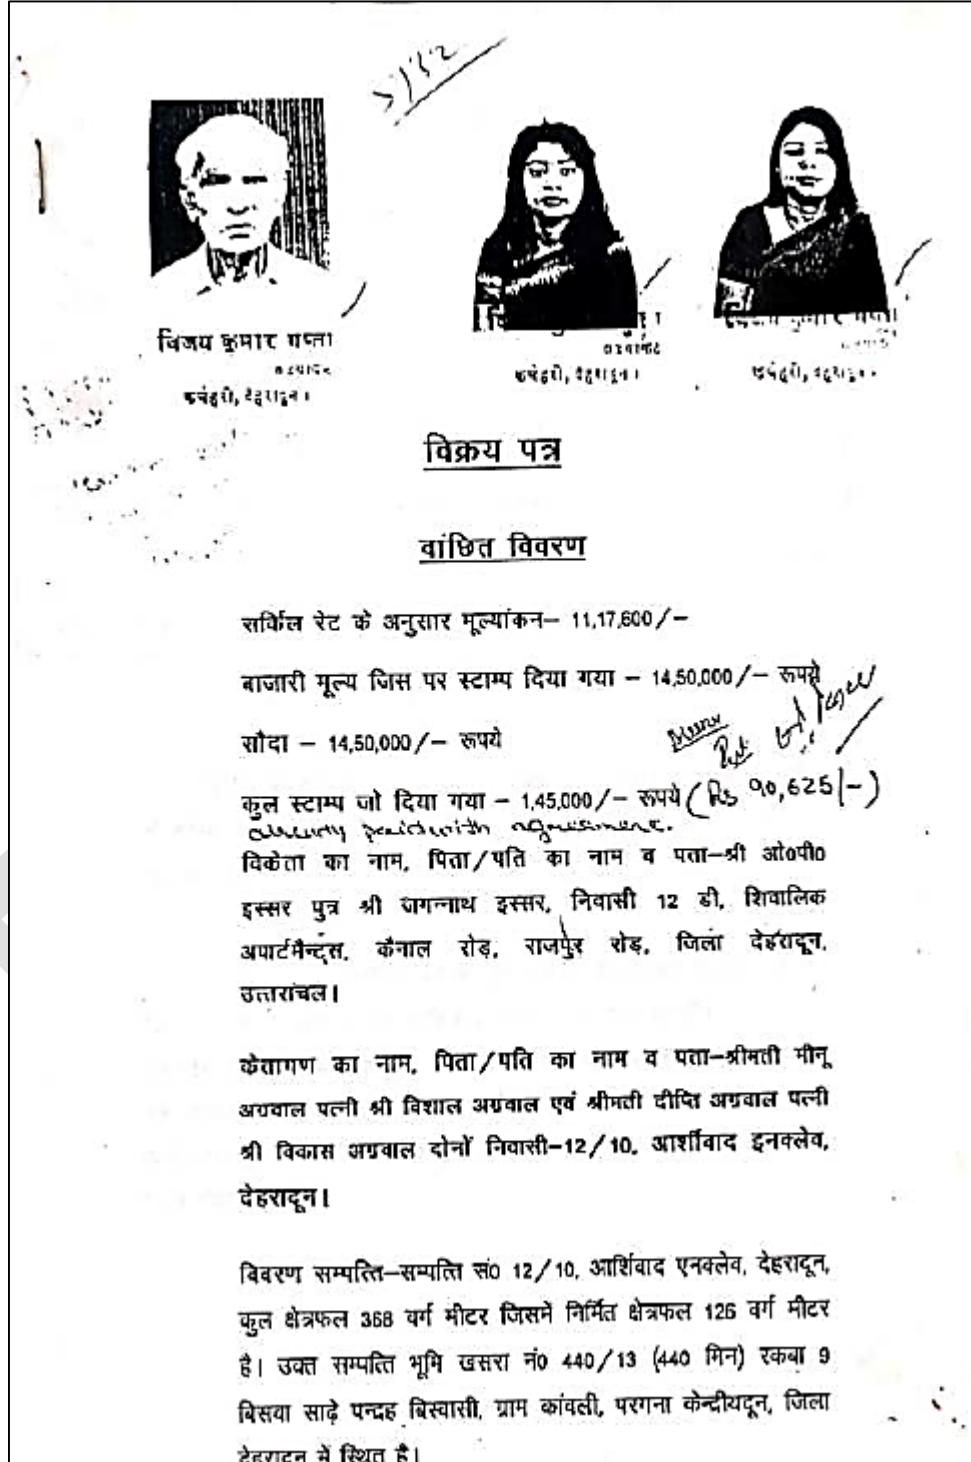 5132
विजय कुमार गुप्ता
कचहरी, देहरादून।
कचहरी, देहरादून।
कचहरी, देहरादून।
विक्रय पत्र
वांछित विवरण
सर्किल रेट के अनुसार मूल्यांकन– 11,17,600/–
बाजारी मूल्य जिस पर स्टाम्प दिया गया – 14,50,000/– रूपये
सौदा – 14,50,000/– रूपये
कुल स्टाम्प जो दिया गया – 1,45,000/– रूपये (Rs 90,625/–)
already paid with agreement.
विकेता का नाम, पिता/पति का नाम व पता–श्री ओ0पी0
इस्सर पुत्र श्री जगन्नाथ इस्सर, निवासी 12 डी, शिवालिक
अपार्टमैन्ट्स, कैनाल रोड़, राजपुर रोड़, जिला देहरादून,
उत्तरांचल।
केतागण का नाम, पिता/पति का नाम व पता–श्रीमती मीनू
अग्रवाल पत्नी श्री विशाल अग्रवाल एवं श्रीमती दीप्ति अग्रवाल पत्नी
श्री विकास अग्रवाल दोनों निवासी–12/10, आर्शीवाद इनक्लेव,
देहरादून।
विवरण सम्पत्ति–सम्पत्ति सं0 12/10, आर्शिवाद एनक्लेव, देहरादून,
कुल क्षेत्रफल 368 वर्ग मीटर जिसमें निर्मित क्षेत्रफल 126 वर्ग मीटर
है। उक्त सम्पत्ति भूमि खसरा नं0 440/13 (440 मिन) रकबा 9
बिसवा साढ़े पन्द्रह बिस्वासी, ग्राम कांवली, परगना केन्दीयदून, जिला
देहरादून में स्थित है।